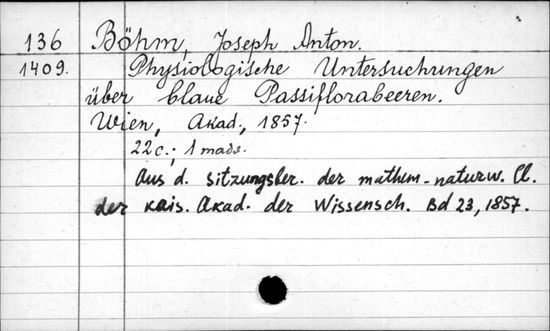 136 Böhm, Joseph Anton.
1409. Physiologische Untersuchungen
über blaue Passiflorabeeren.
Wien, Akad., 1857.
22c.; 1 mass.
Aus d. Sitzungsber. der mathem-naturw. Cl.
der kais. Akad. der Wissensch. Bd 23, 1857.